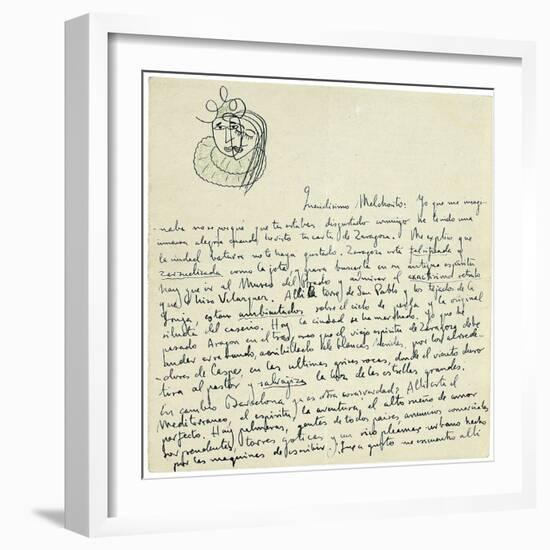 Queridísimo Melchorito: Yo que me imagi-
naba no sé porqué que tu estabas disgustado conmigo he tenido una
inmensa alegria cuando he visto tu carta de Zaragoza. Me explico que
la ciudad baturra no te haya gustado. Zaragoza está falsificada y
zarzuelizada como la jota y para buscarla en su antiguo espíritu
hay que ir al Museo del Prado y admirar el exactísimo retrato
que hizo Velazquez. Alli la torre de San Pablo y los tejados de la
lonja estan ambientados sobre el cielo de perla y la original
silueta del caserio. Hoy la ciudad se ha marchado. Yo que he
pasado Aragon en el tren, creo que el viejo espiritu de Zaragoza debe
andar errabundo, por los alrede-
dores de Caspe, en las ultimas grises rocas, donde el viento
tira al pastor y salvajiza la luz de las estrellas grandes.
En cambio Barcelona ya es otra cosa ¿verdad? Alli está el
Mediterraneo, el espíritu, la aventura, el alto sueño de amor
perfecto. Hay palmeras, gentes de todos paises, anuncios comerciales
sorprendentes, torres goticas y un rico pleamar urbano hecho
por las maquinas de escribir. ¡Que a gusto me encuentro alli